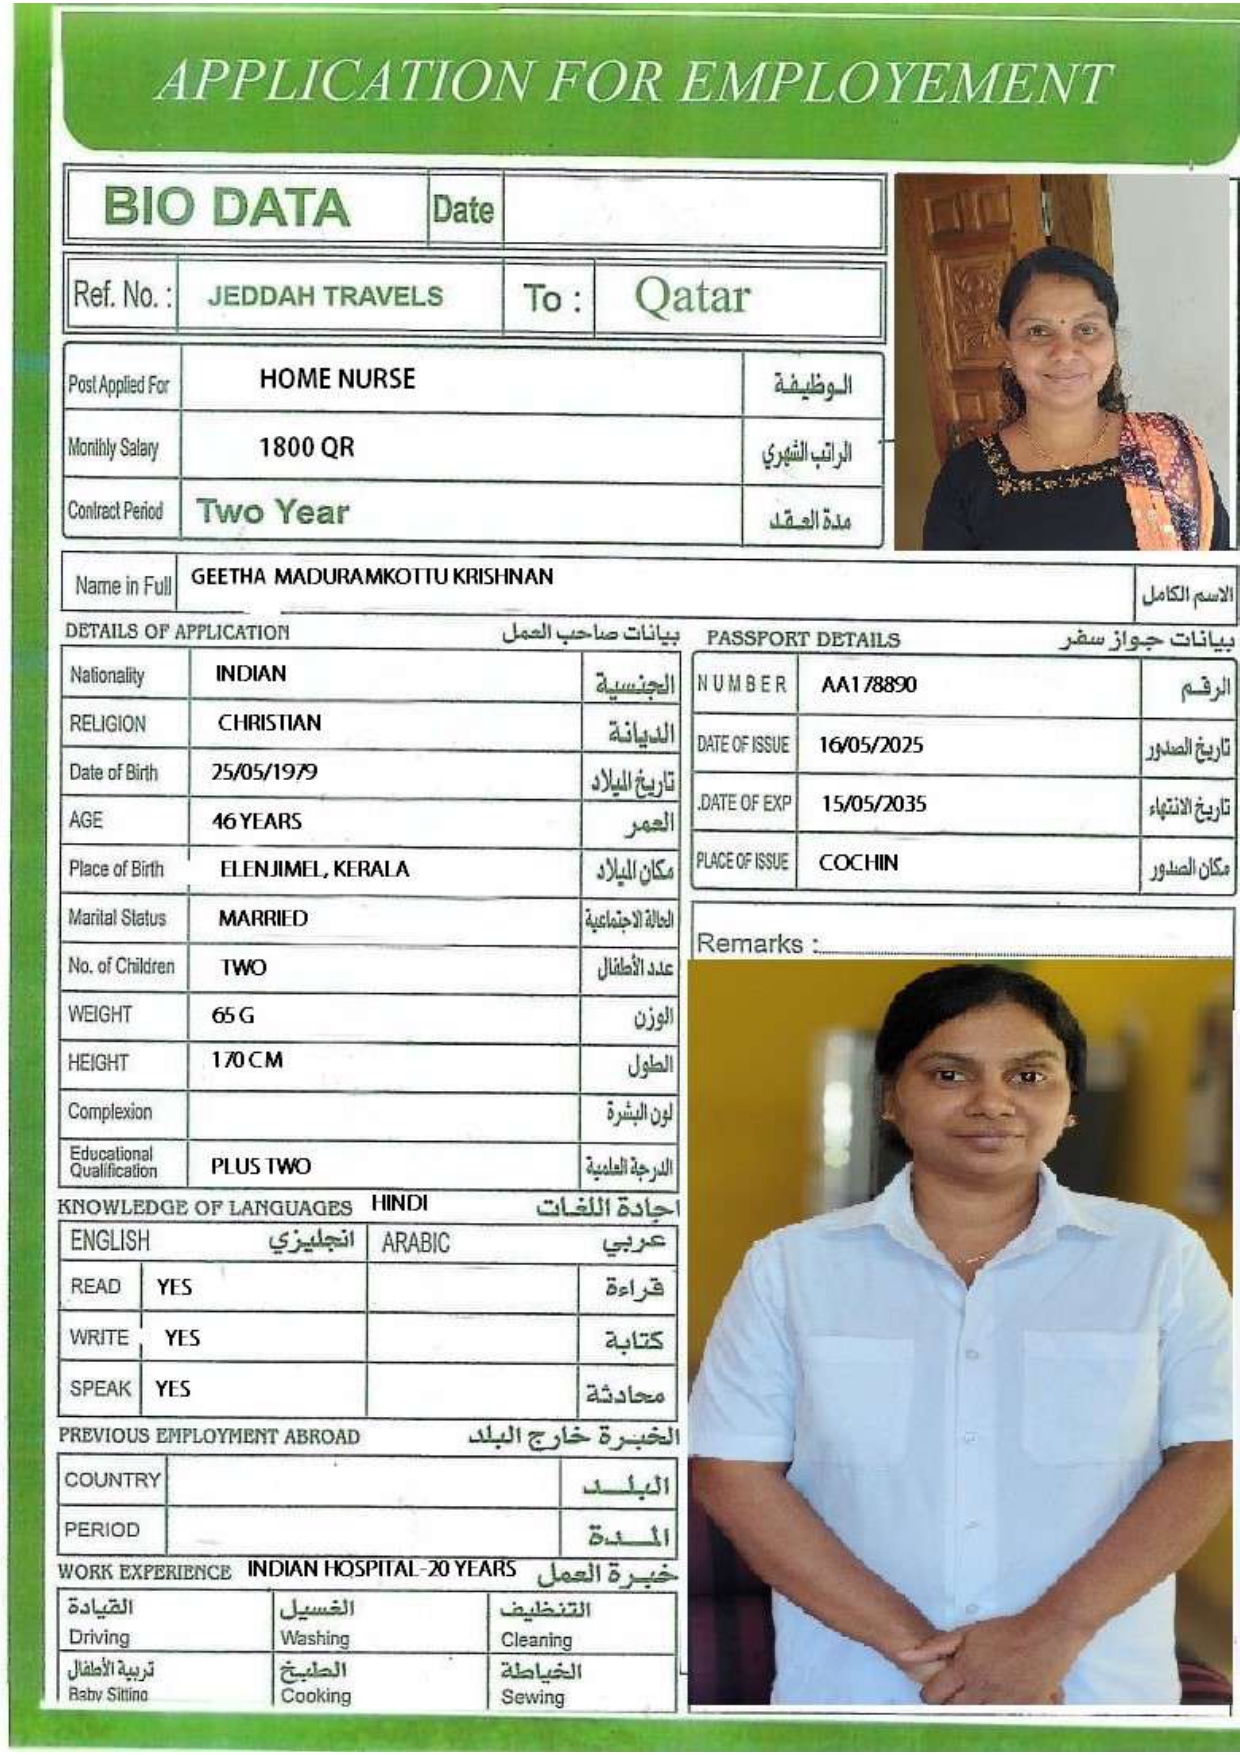 APPLICATION FOR EMPLOYEMENT
BIO DATA
Date
Ref. No. : JEDDAH TRAVELS To : Qatar
Post Applied For HOME NURSE الوظيفة
Monthly Salary 1800 QR الراتب الشهري
Contract Period Two Year مدة العقد
Name in Full GEETHA MADURAMKOTTU KRISHNAN الاسم الكامل
DETAILS OF APPLICATION بيانات صاحب العمل
Nationality INDIAN الجنسية
RELIGION CHRISTIAN الديانة
Date of Birth 25/05/1979 تاريخ الميلاد
AGE 46 YEARS العمر
Place of Birth ELENJIMEL, KERALA مكان الميلاد
Marital Status MARRIED الحالة الاجتماعية
No. of Children TWO عدد الأطفال
WEIGHT 65 G الوزن
HEIGHT 170 CM الطول
Complexion لون البشرة
Educational
Qualification PLUS TWO الدرجة العلمية
PASSPORT DETAILS بيانات جواز سفر
NUMBER AA178890 الرقم
DATE OF ISSUE 16/05/2025 تاريخ الصدور
.DATE OF EXP 15/05/2035 تاريخ الانتهاء
PLACE OF ISSUE COCHIN مكان الصدور
Remarks :
KNOWLEDGE OF LANGUAGES HINDI اجادة اللغات
ENGLISH انجليزي ARABIC عربي
READ YES قراءة
WRITE YES كتابة
SPEAK YES محادثة
PREVIOUS EMPLOYMENT ABROAD الخبرة خارج البلد
COUNTRY البلد
PERIOD المدة
WORK EXPERIENCE INDIAN HOSPITAL-20 YEARS خبرة العمل
القيادة الغسيل التنظيف
Driving Washing Cleaning
تربية الأطفال الطبخ الخياطة
Baby Sitting Cooking Sewing